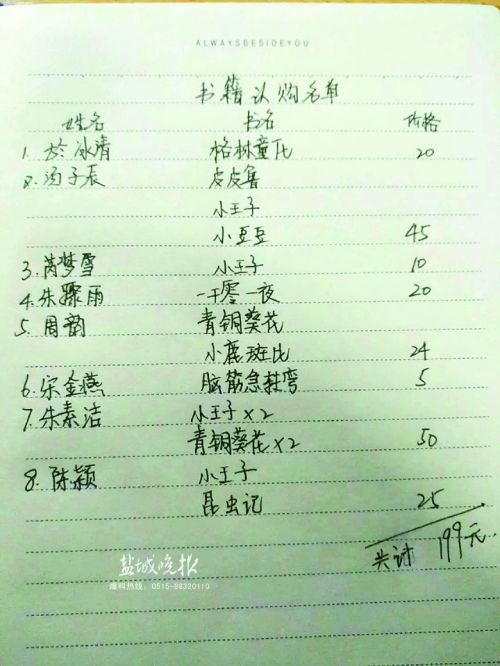 ALWAYSBESIDEYOU
书籍认购名单
姓名 书名 价格
1. 於冰清 格林童话 20
2. 汤子辰 皮皮鲁
小王子
小豆豆 45
3. 芮梦雪 小王子 10
4. 朱骤雨 一千零一夜 20
5. 周韵 青铜葵花
小鹿斑比 24
6. 宋金燕 脑筋急转弯 5
7. 朱素洁 小王子×2
青铜葵花×2 50
8. 陈颖 小王子
昆虫记 25
共计 199元
盐城晚报
爆料热线：0515-88320110